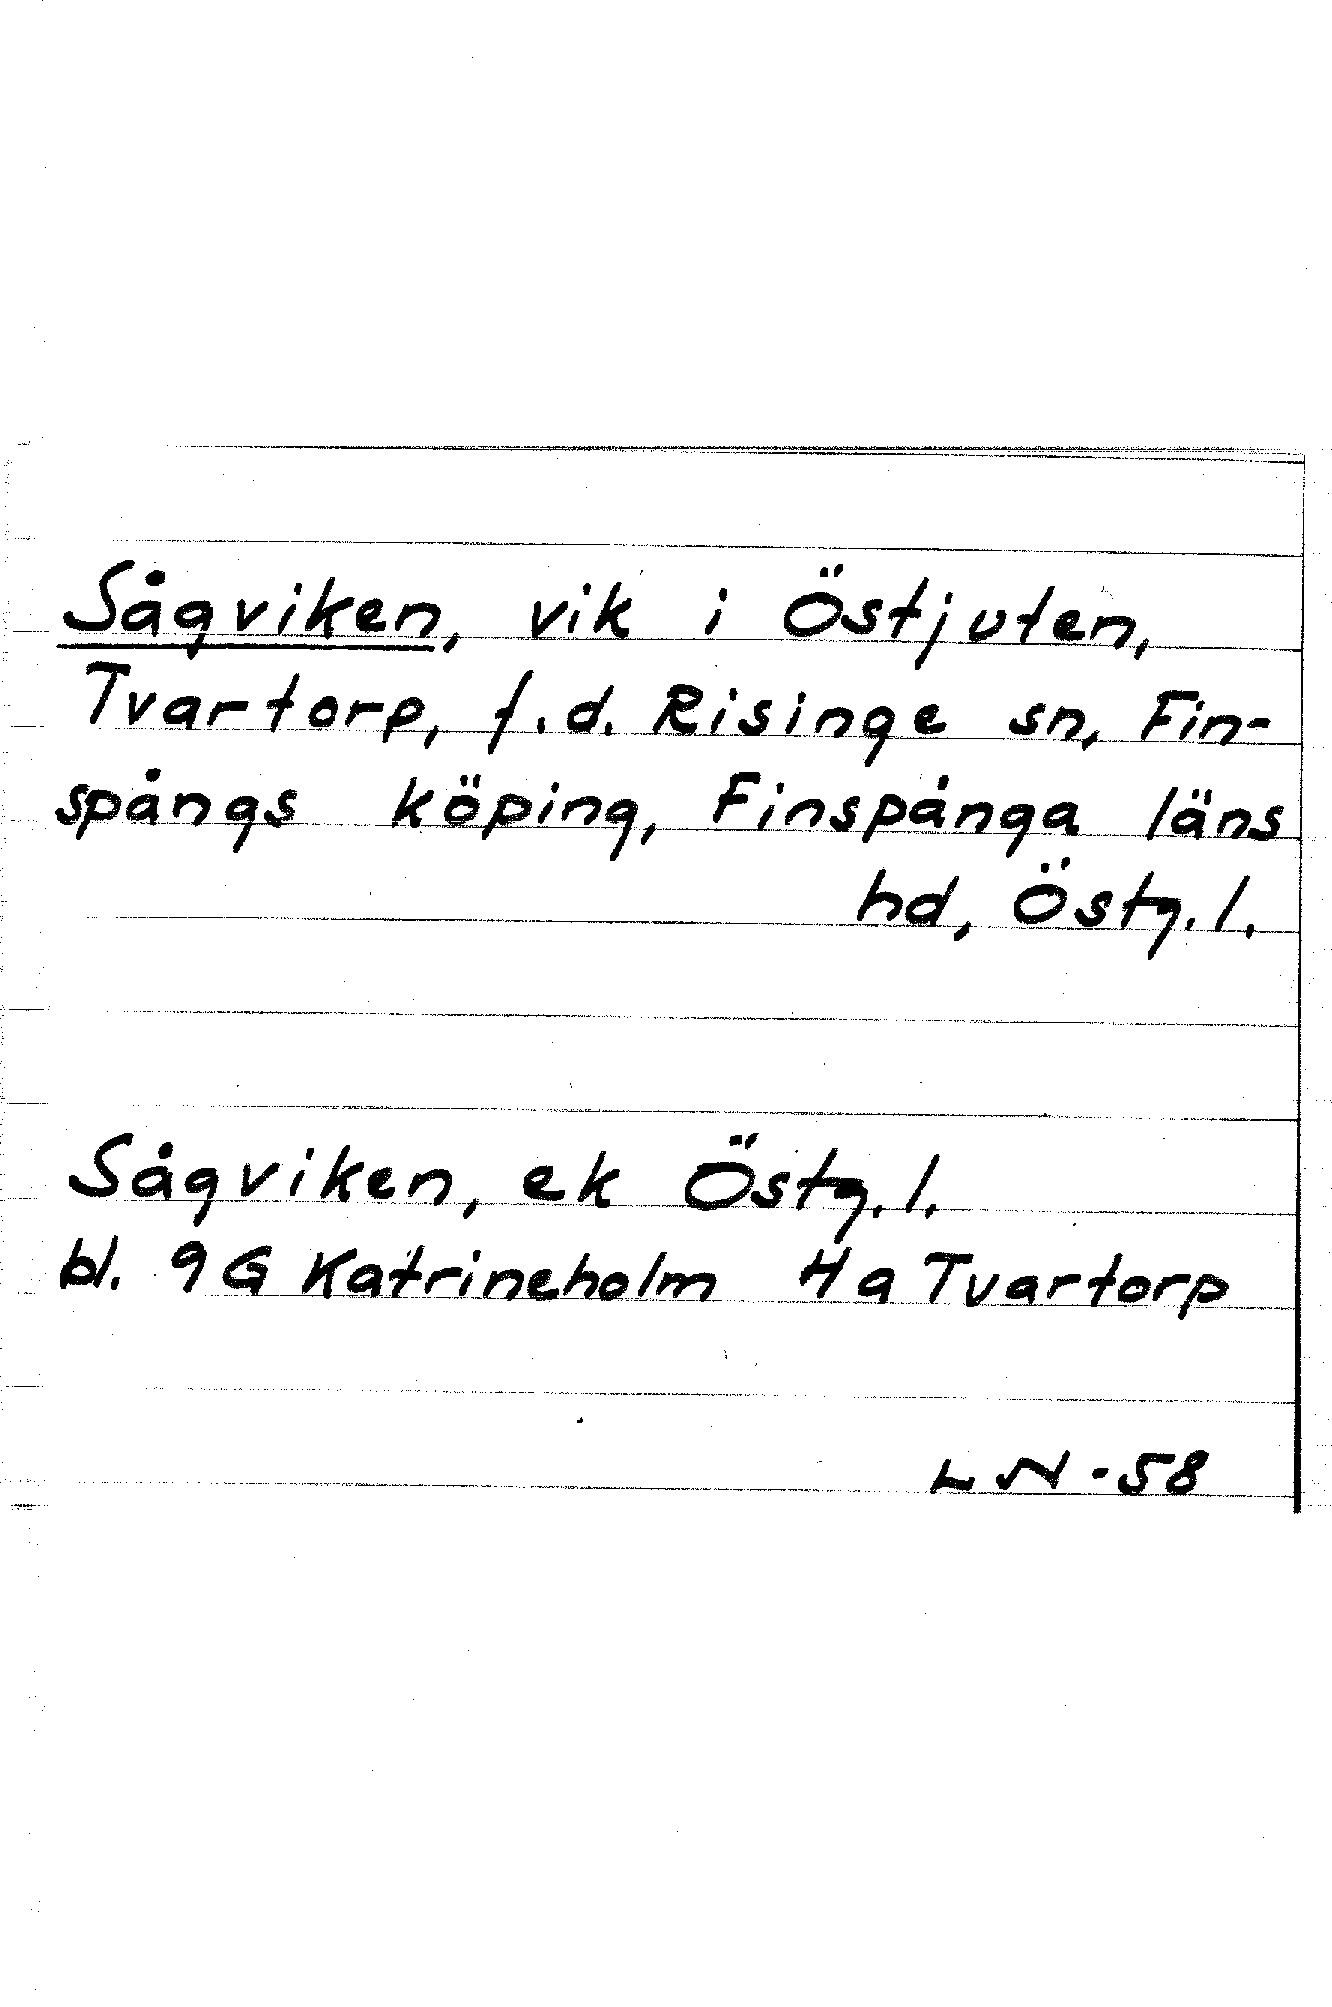 Sågviken, vik i Östjuten,
Tvartorp, f.d. Risinge sn, Fin-
spångs köping, Finspånga läns
hd, Östg.l.
Sågviken, ek Östg.l.
bl. 9G Katrineholm Ha Tvartorp
LN -58